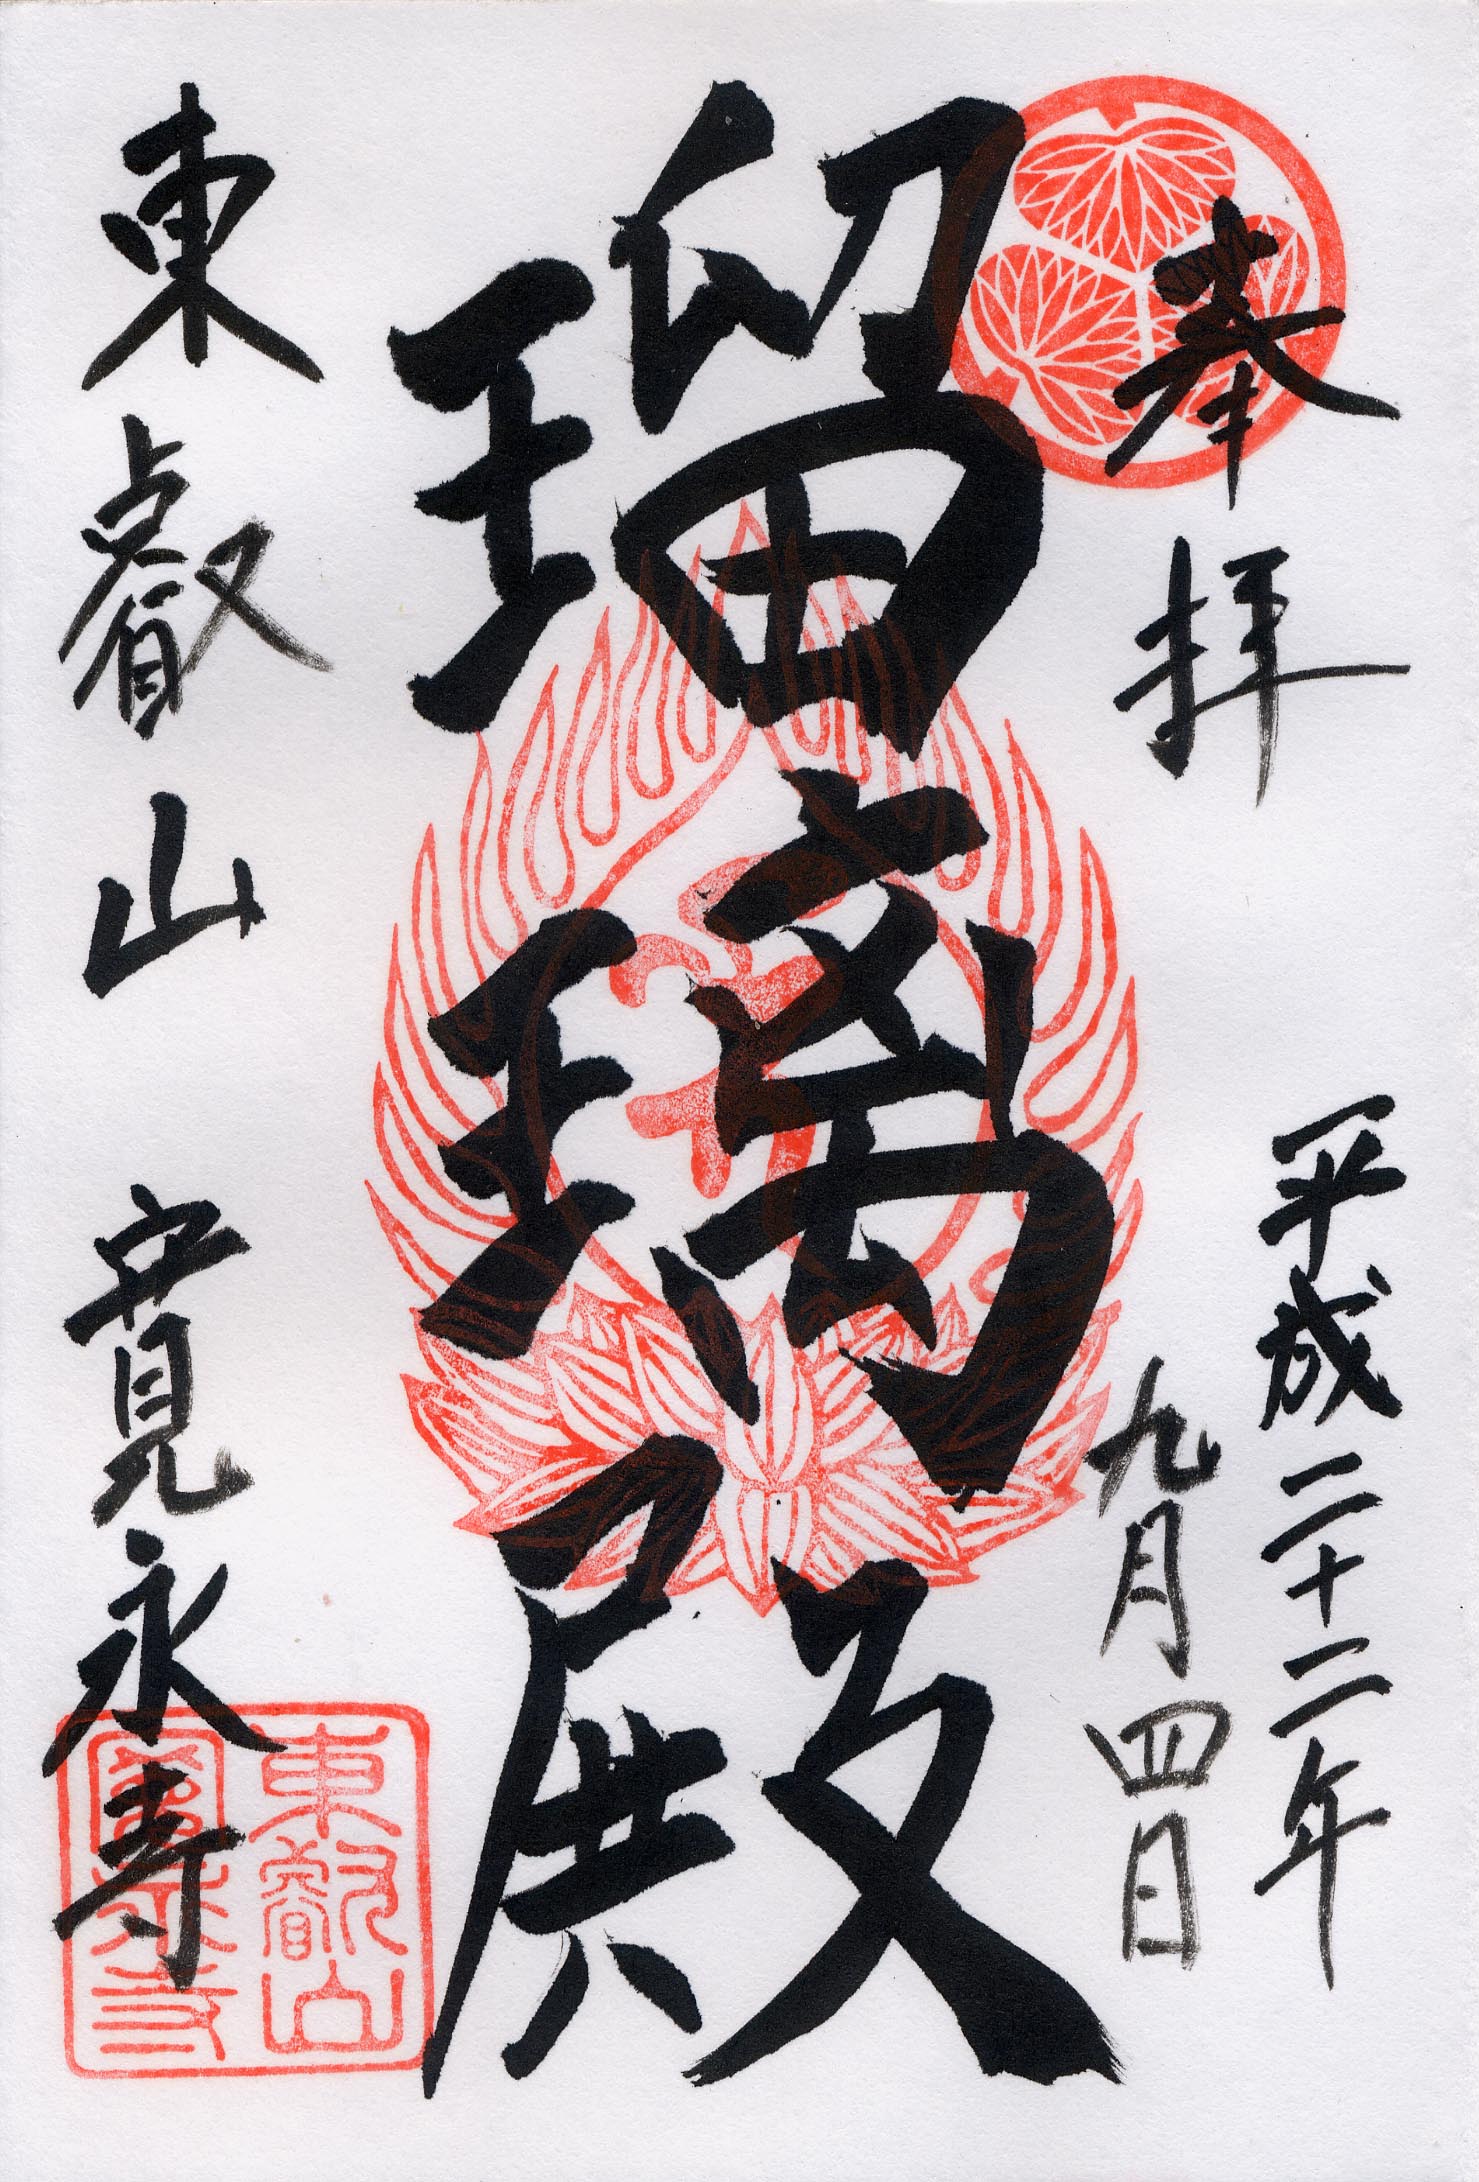 奉拝
平成二十二年
九月四日
瑠璃殿
東叡山 寛永寺
東叡山
寛永寺